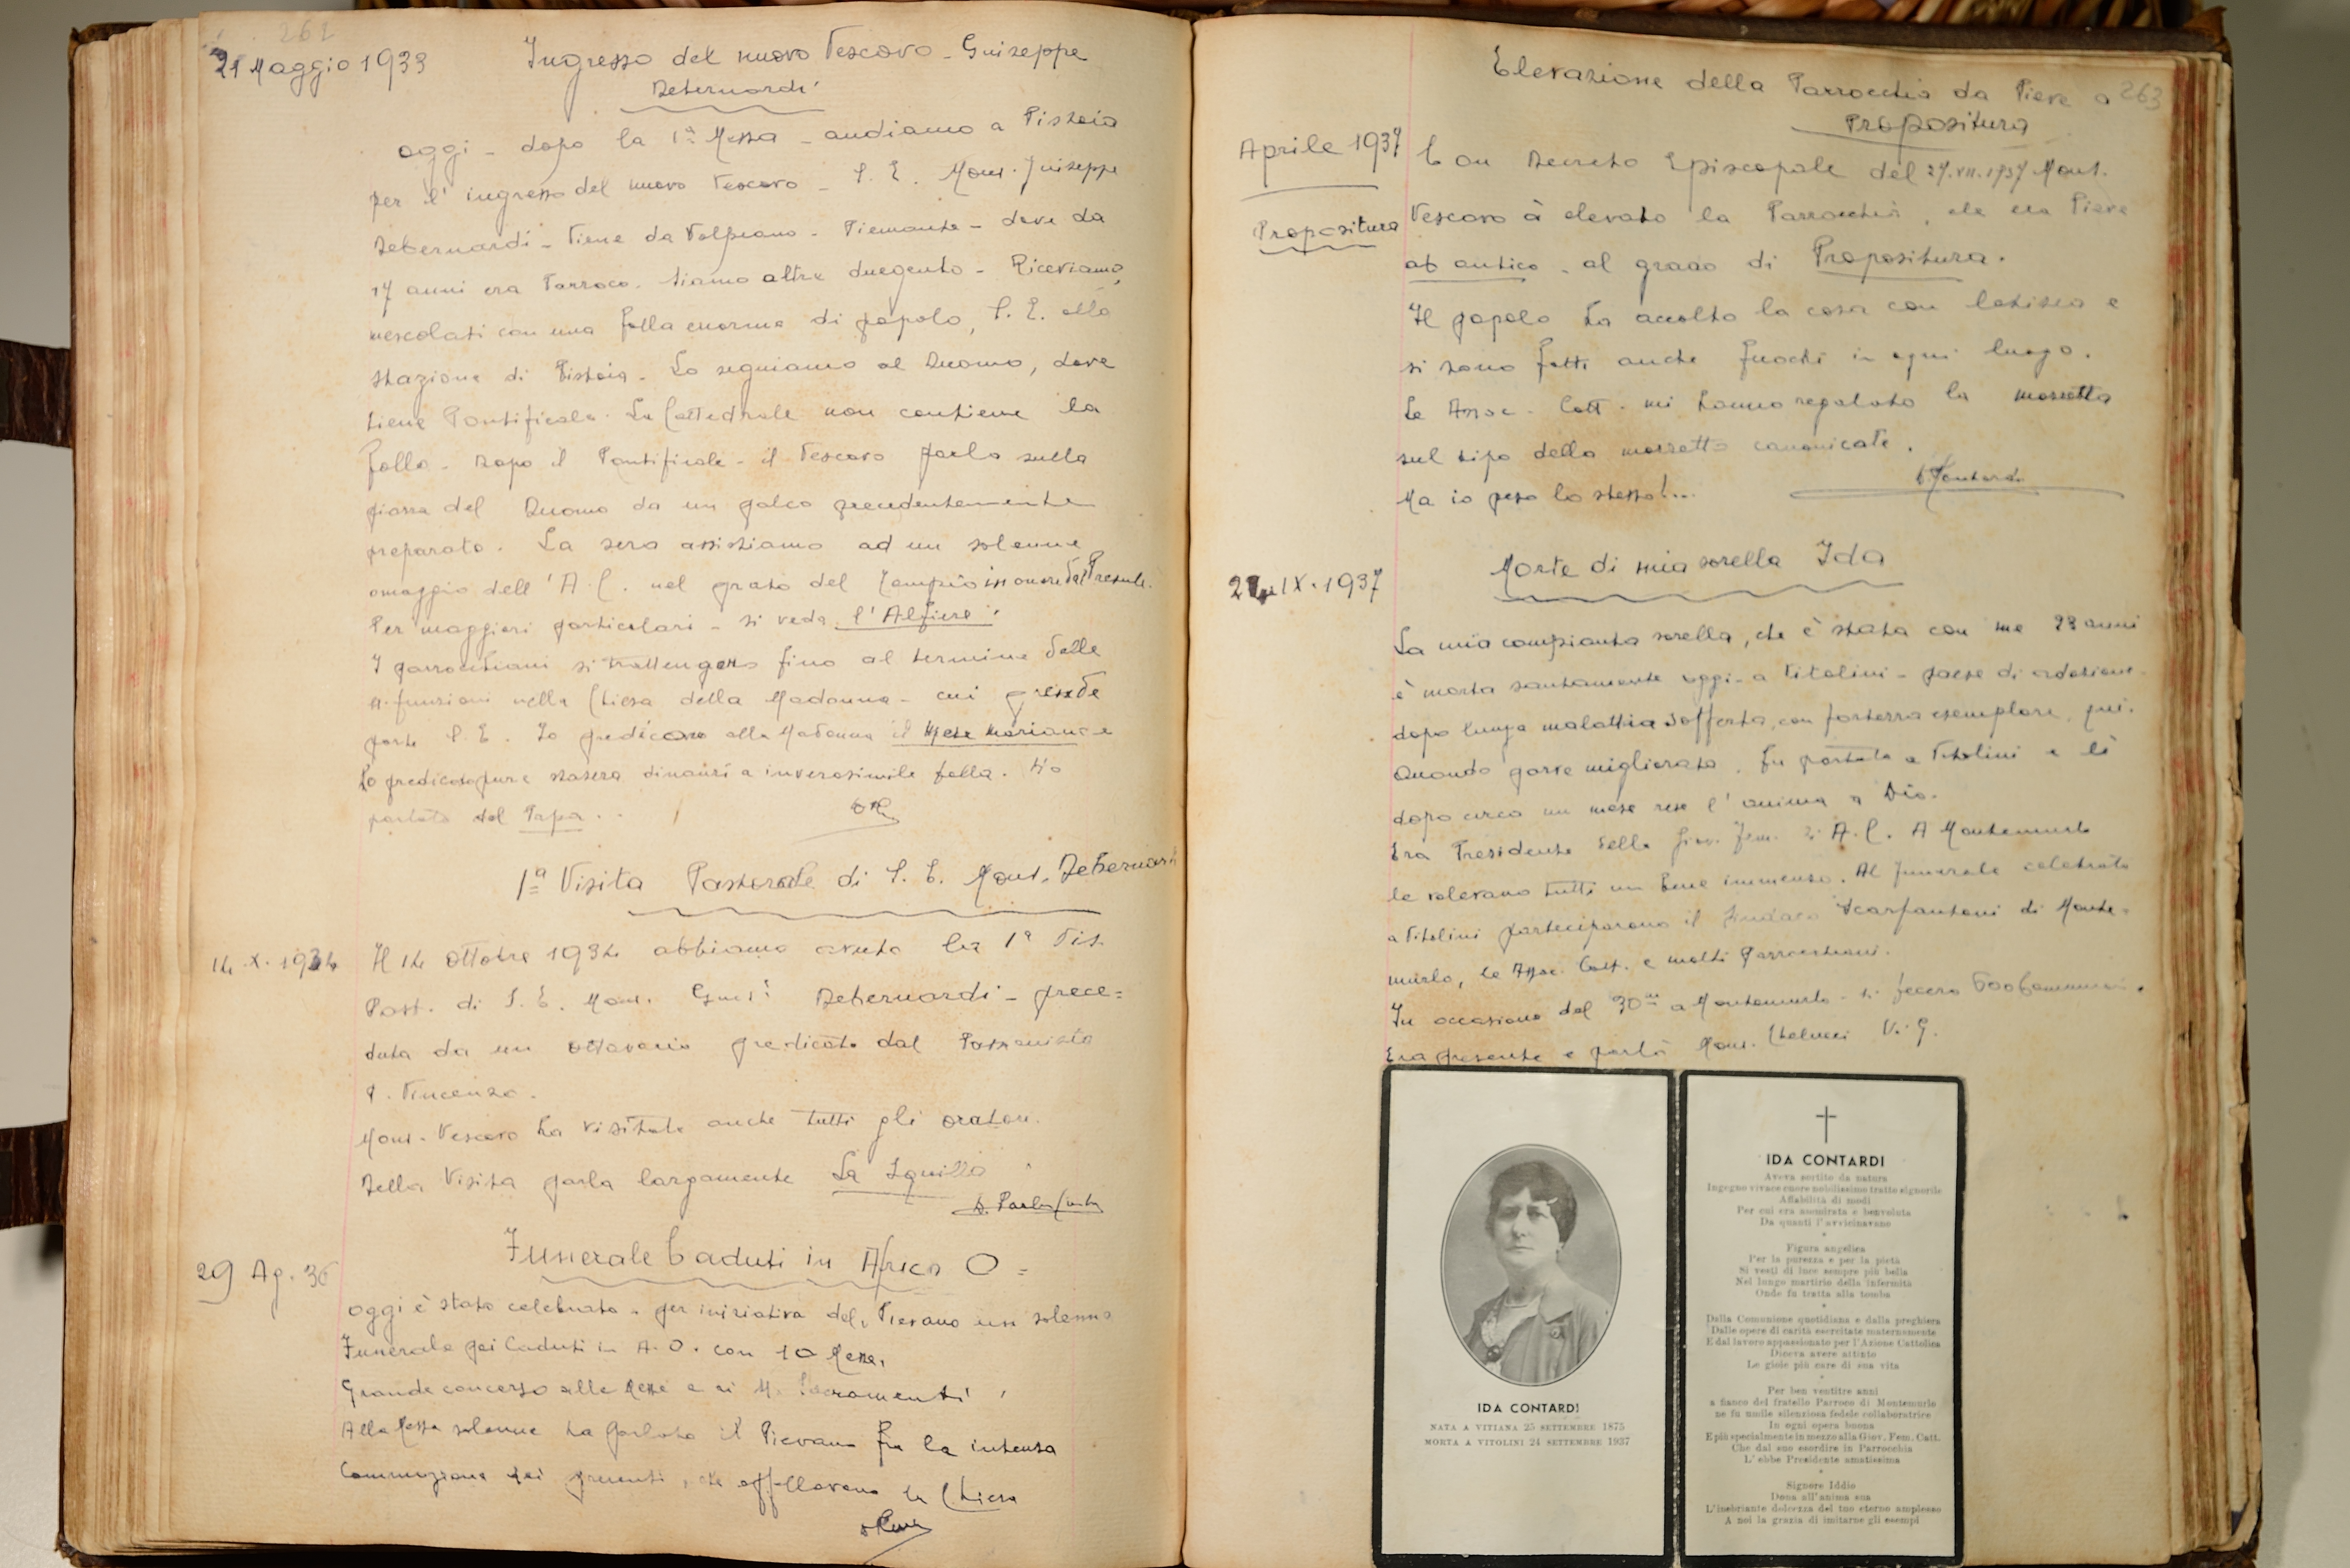 262
21 Maggio 1933
Ingresso del nuovo Vescovo - Guiseppe
Debernardi
Oggi - dopo la 1ª Messa - andiamo a Pistoia
per l'ingresso del nuovo Vescovo - S. E. Mons. Giuseppe
Debernardi - Viene da Volpiano - Piemonte - dove da
17 anni era Parroco. Siamo oltre duegento - Riceviamo,
mescolati con una folla enorme di popolo, S. E. alla
stazione di Pistoia. Lo seguiamo al Duomo, dove
tiene Pontificale. La Cattedrale non contiene la
folla. Dopo il Pontificale - il Vescovo parla sulla
piazza del Duomo da un palco precedentemente
preparato. La sera assistiamo ad un solenne
omaggio dell'A.C. nel prato del Tempio in onore del Presule.
Per maggiori particolari - si veda l'Alfiere.
I parrocchiani si trattengono fino al termine delle
funzioni nella Chiesa della Madonna - cui prende
parte S. E. Io predicavo alla Madonna il Mese Mariano e
ho predicato pure stasera dinanzi a inverosimile folla. Ho
parlato del Papa.
1ª Visita Pastorale di S. E. Mons. Debernardi
14.X.1934
Il 14 Ottobre 1934 abbiamo avuto la 1ª Vis.
Past. di S. E. Mons. Gius. Debernardi - prece=
duta da un ottavario predicato dal Passionista
P. Vincenzo.
Mons. Vescovo ha visitato anche tutti gli oratori.
Della Visita parla largamente La Squilla
29 Ag. 36
Funerale Caduti in Africa O=
Oggi è stato celebrato - per iniziativa del Pievano un solenne
Funerale pei Caduti in A.O. con 10 Messe.
Grande concorso alle Messe e ai SS. Sacramenti.
Alla Messa solenne ha parlato il Pievano fra la intensa
Commozione dei presenti, che affollavano la Chiesa
263
Elevazione della Parrocchia da Pieve a
Propositura
Aprile 1937
Propositura
Con Decreto Episcopale del 27.VII.1937 Mons.
Vescovo à elevato la Parrocchia, che era Pieve
ab antico - al grado di Propositura.
Il popolo ha accolto la cosa con letizia e
si sono fatti anche fuochi in ogni luogo.
Le Assoc. Catt. mi hanno regalato la mozzetta
sul tipo della mozzetta canonicale.
Ma io peso lo stesso!...
Morte di mia sorella Ida
24.IX.1937
La mia compianta sorella, che è stata con me 23 anni
è morta santamente oggi - a Vitolini - paese di adozione -
dopo lunga malattia sofferta, con fortezza esemplare, qui.
Quando parve migliorata, fu portata a Vitolini e lì
dopo circa un mese rese l'anima a Dio.
Era Presidente della Giov. Fem. di A.C. A Montemurlo
le volevano tutti un bene immenso. Al funerale celebrato
a Vitolini parteciparono il Sindaco Scarfantoni di Monte-
murlo, le Assoc. Catt. e molti Parrocchiani.
In occasione del 30mo a Montemurlo - si fecero 600 Comunioni.
Era presente e parlò Mons. Chelucci V. G.
IDA CONTARDI
NATA A VITIANA 25 SETTEMBRE 1875
MORTA A VITOLINI 24 SETTEMBRE 1937
IDA CONTARDI
Aveva sortito da natura
Ingegno vivace cuore nobilissimo tratto signorile
Affabilità di modi
Per cui era ammirata e benvoluta
Da quanti l'avvicinavano
*
Figura angelica
Per la purezza e per la pietà
Si vestì di luce sempre più bella
Nel lungo martirio della infermità
Onde fu tratta alla tomba
*
Dalla Comunione quotidiana e dalla preghiera
Dalle opere di carità esercitate maternamente
E dal lavoro appassionato per l'Azione Cattolica
Diceva avere attinto
Le gioie più care di sua vita
*
Per ben ventitre anni
a fianco del fratello Parroco di Montemurlo
ne fu umile silenziosa fedele collaboratrice
In ogni opera buona
E più specialmente in mezzo alla Giov. Fem. Catt.
Che dal suo esordire in Parrocchia
L'ebbe Presidente amatissima
*
Signore Iddio
Dona all'anima sua
L'inebriante dolcezza del tuo eterno amplesso
A noi la grazia di imitarne gli esempi